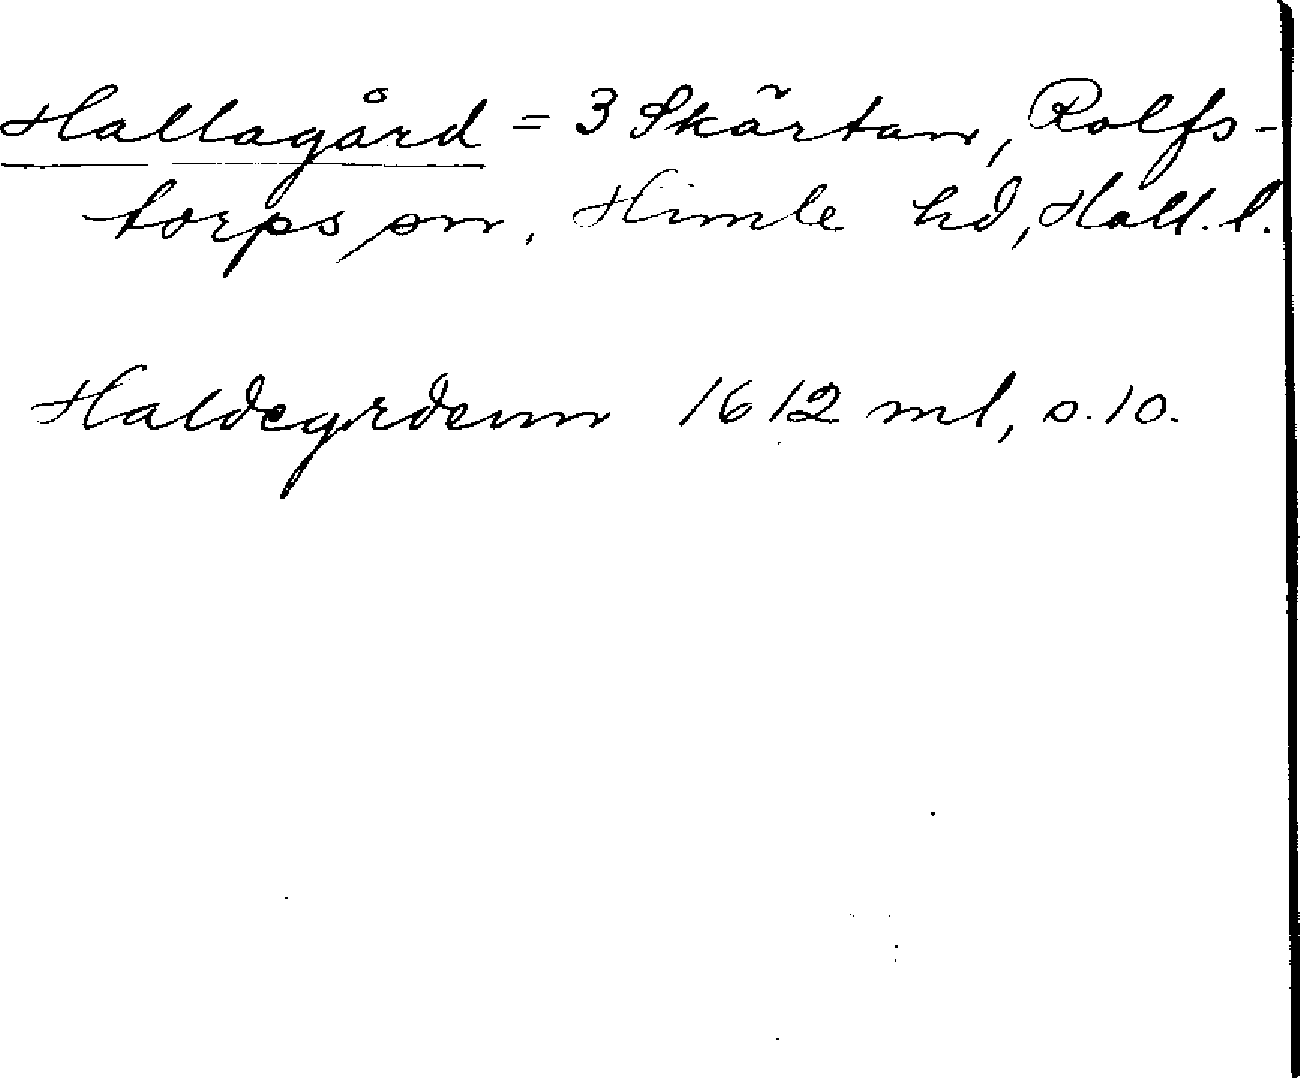 Hallagård = 3 Skärtan, Rolfs-
torps sn, Himle hd, Hall. l.
Haldegrdenn 1612 ml, s. 10.